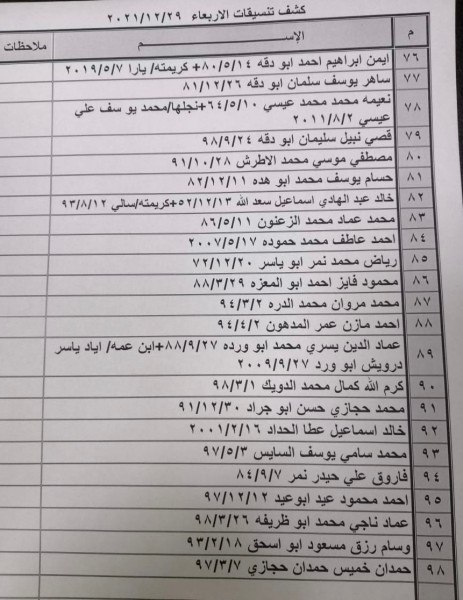 كشف تنسيقات الاربعاء ٢٠٢١/١٢/٢٩
م الإســــــم ملاحظات
٧٦ ايمن ابراهيم احمد ابو دقه ٨٠/٥/١٤+ كريمته/ يارا ٢٠١٩/٥/٧
٧٧ ساهر يوسف سلمان ابو دقه ٨١/١٢/٢٦
٧٨ نعيمه محمد محمد عيسي ٦٤/٥/١٠+نجلها/محمد يو سف علي
عيسي ٢٠١١/٨/٢
٧٩ قصي نبيل سليمان ابو دقه ٩٨/٩/٢٤
٨٠ مصطفي موسي محمد الاطرش ٩١/١٠/٢٨
٨١ حسام يوسف محمد ابو هده ٨٢/١٢/١١
٨٢ خالد عبد الهادي اسماعيل سعد الله ٥٢/١٢/١٣+كريمته/سالي ٩٣/٨/١٢
٨٣ محمد عماد محمد الزعنون ٨٦/٥/١١
٨٤ احمد عاطف محمد حموده ٢٠٠٧/٥/١٧
٨٥ رياض محمد نمر ابو ياسر ٧٢/١٢/٢٠
٨٦ محمود فايز احمد ابو المعزه ٨٨/٣/٢٩
٨٧ محمد مروان محمد الدره ٩٤/٣/٢
٨٨ احمد مازن عمر المدهون ٩٤/٤/٢
٨٩ عماد الدين يسري محمد ابو ورده ٨٨/٩/٢٧+ابن عمه/ اياد ياسر
درويش ابو ورد ٢٠٠٩/٩/٢٧
٩٠ كرم الله كمال محمد الدويك ٩٨/٣/١
٩١ محمد حجازي حسن ابو جراد ٩١/١٢/٣٠
٩٢ خالد اسماعيل عطا الحداد ٢٠٠١/٢/١٦
٩٣ محمد سامي يوسف السايس ٩٧/٥/٣
٩٤ فاروق علي حيدر نمر ٨٤/٩/٧
٩٥ احمد محمود عيد ابوعيد ٩٧/١٢/١٢
٩٦ عماد ناجي محمد ابو ظريفه ٩٨/٣/٢٦
٩٧ وسام رزق مسعود ابو اسحق ٩٣/٢/١٨
٩٨ حمدان خميس حمدان حجازي ٩٧/٣/٧